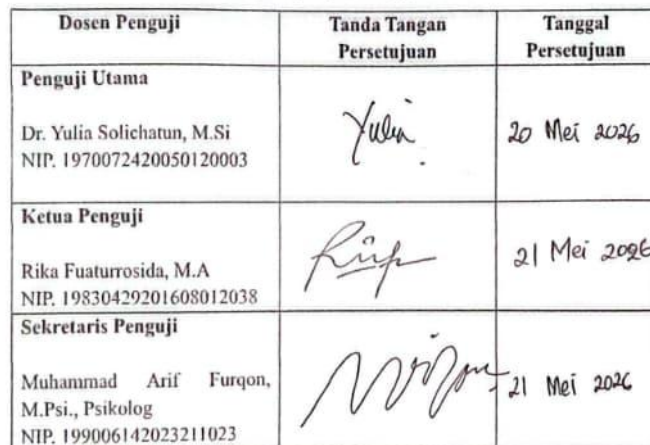 Dosen Penguji
Tanda Tangan
Persetujuan
Tanggal
Persetujuan
Penguji Utama
Dr. Yulia Solichatun, M.Si
NIP. 1970072420050120003
Yulia
20 Mei 2026
Ketua Penguji
Rika Fuaturrosida, M.A
NIP. 19830429201608012038
21 Mei 2026
Sekretaris Penguji
Muhammad Arif Furqon,
M.Psi., Psikolog
NIP. 199006142023211023
21 Mei 2026